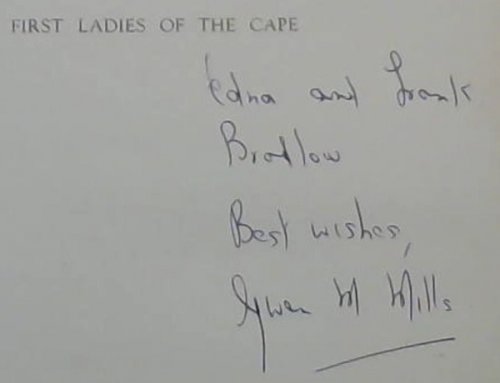 FIRST LADIES OF THE CAPE
Edna and Frank
Bradlow
Best wishes,
Gwen M Mills